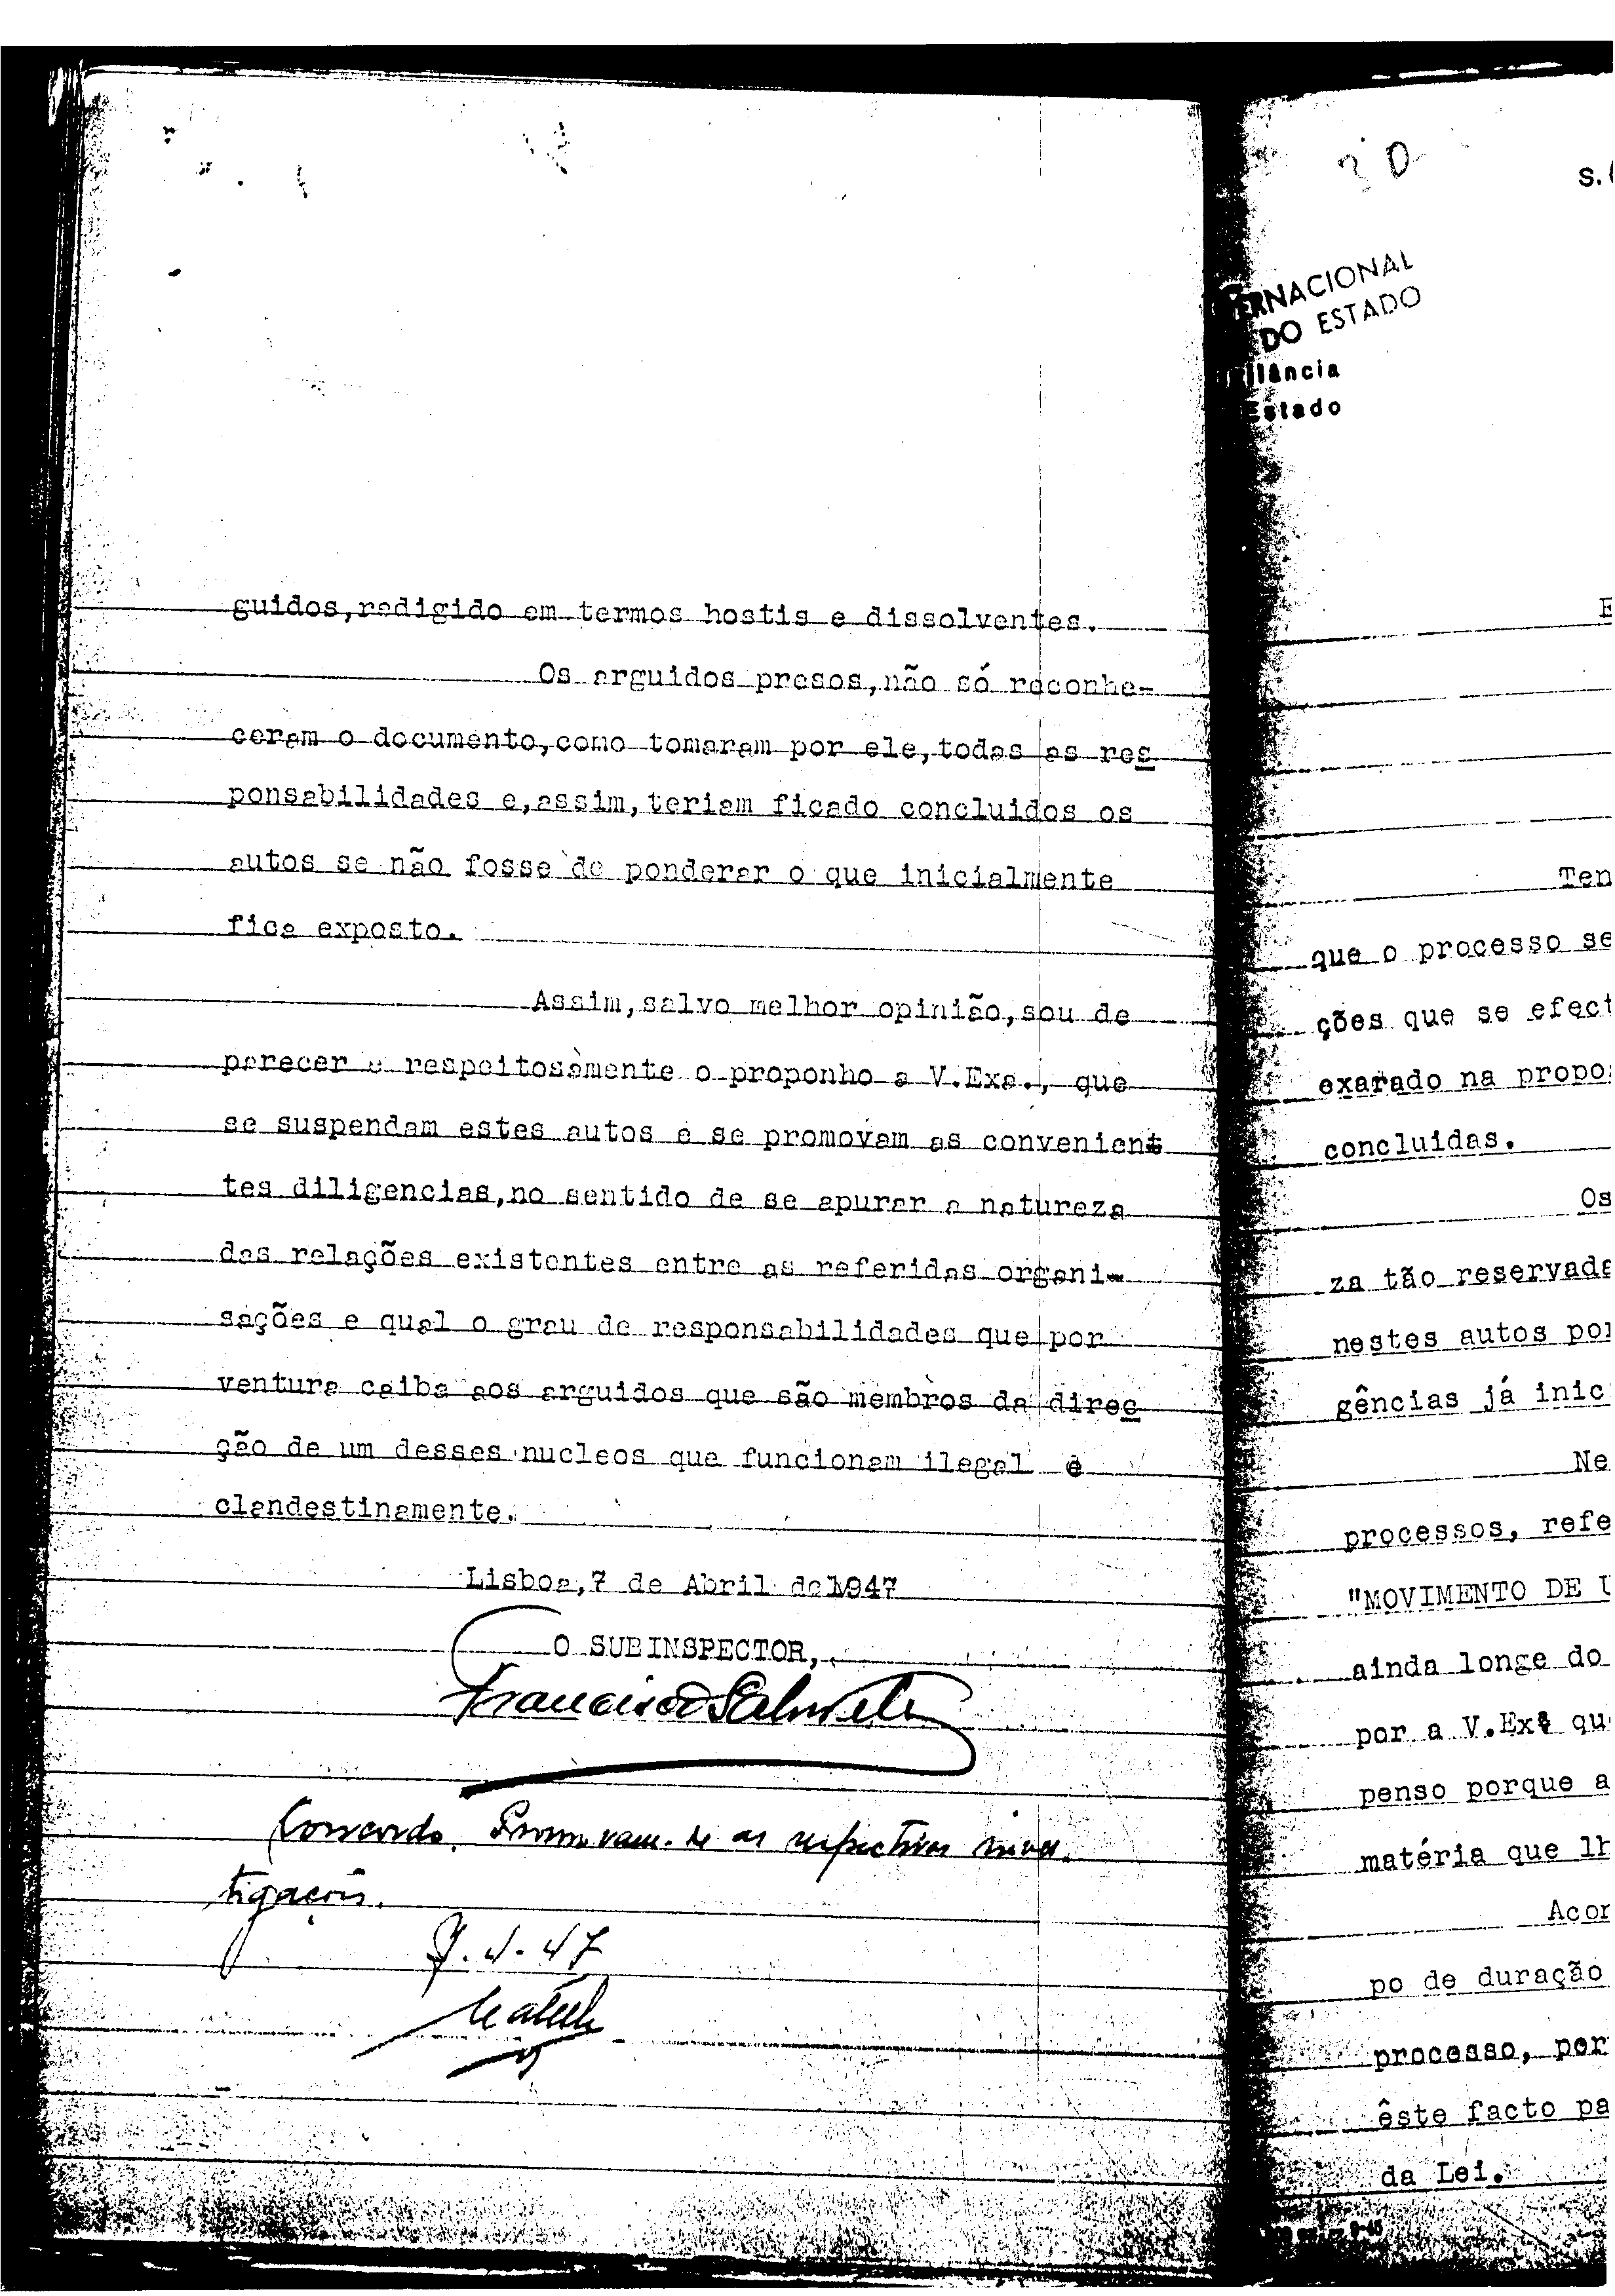 guidos,redigido em termos hostis e dissolventes.
Os arguidos presos,não só reconhe-
ceram o documento,como tomaram por ele,todas as res
ponsabilidades e,assim,teriam ficado concluidos os
autos se não fosse de ponderar o que inicialmente
fica exposto.
Assim,salvo melhor opinião,sou de
parecer e respeitosamente o proponho a V.Exa., que
se suspendam estes autos e se promovam as convenient
tes diligencias,no sentido de se apurar a natureza
das relações existentes entre as referidas organi-
sações e qual o grau de responsabilidades que por
ventura caiba aos arguidos que são membros da direc
ção de um desses nucleos que funcionam ilegal e
clandestinamente.
Lisboa,7 de Abril de 1947
O SUBINSPECTOR,
Francisco
Concordo. Promovam-se as respectivas inves-
tigações.
7.4.47
30
S.
ERNACIONAL
DO ESTADO
ilância
Estado
E
Ten
que o processo se
ções que se efect
exarado na propos
concluidas.
Os
za tão reservada
nestes autos por
gências já inic
Ne
processos, refe
"MOVIMENTO DE U
ainda longe do
por a V.Exª qu
penso porque a
matéria que lh
Acor
po de duração
processo, por
êste facto pa
da Lei.
9-45